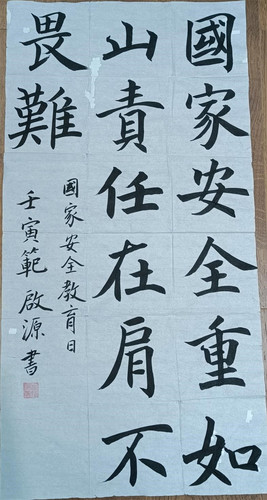 國家安全重如
山責任在肩不
畏難
國家安全教育日
壬寅範啟源書